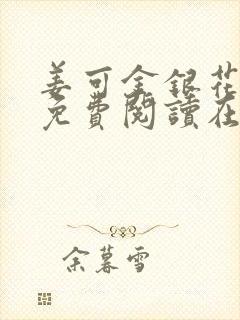 姜可金銀花
免費閱讀在
余暮雪